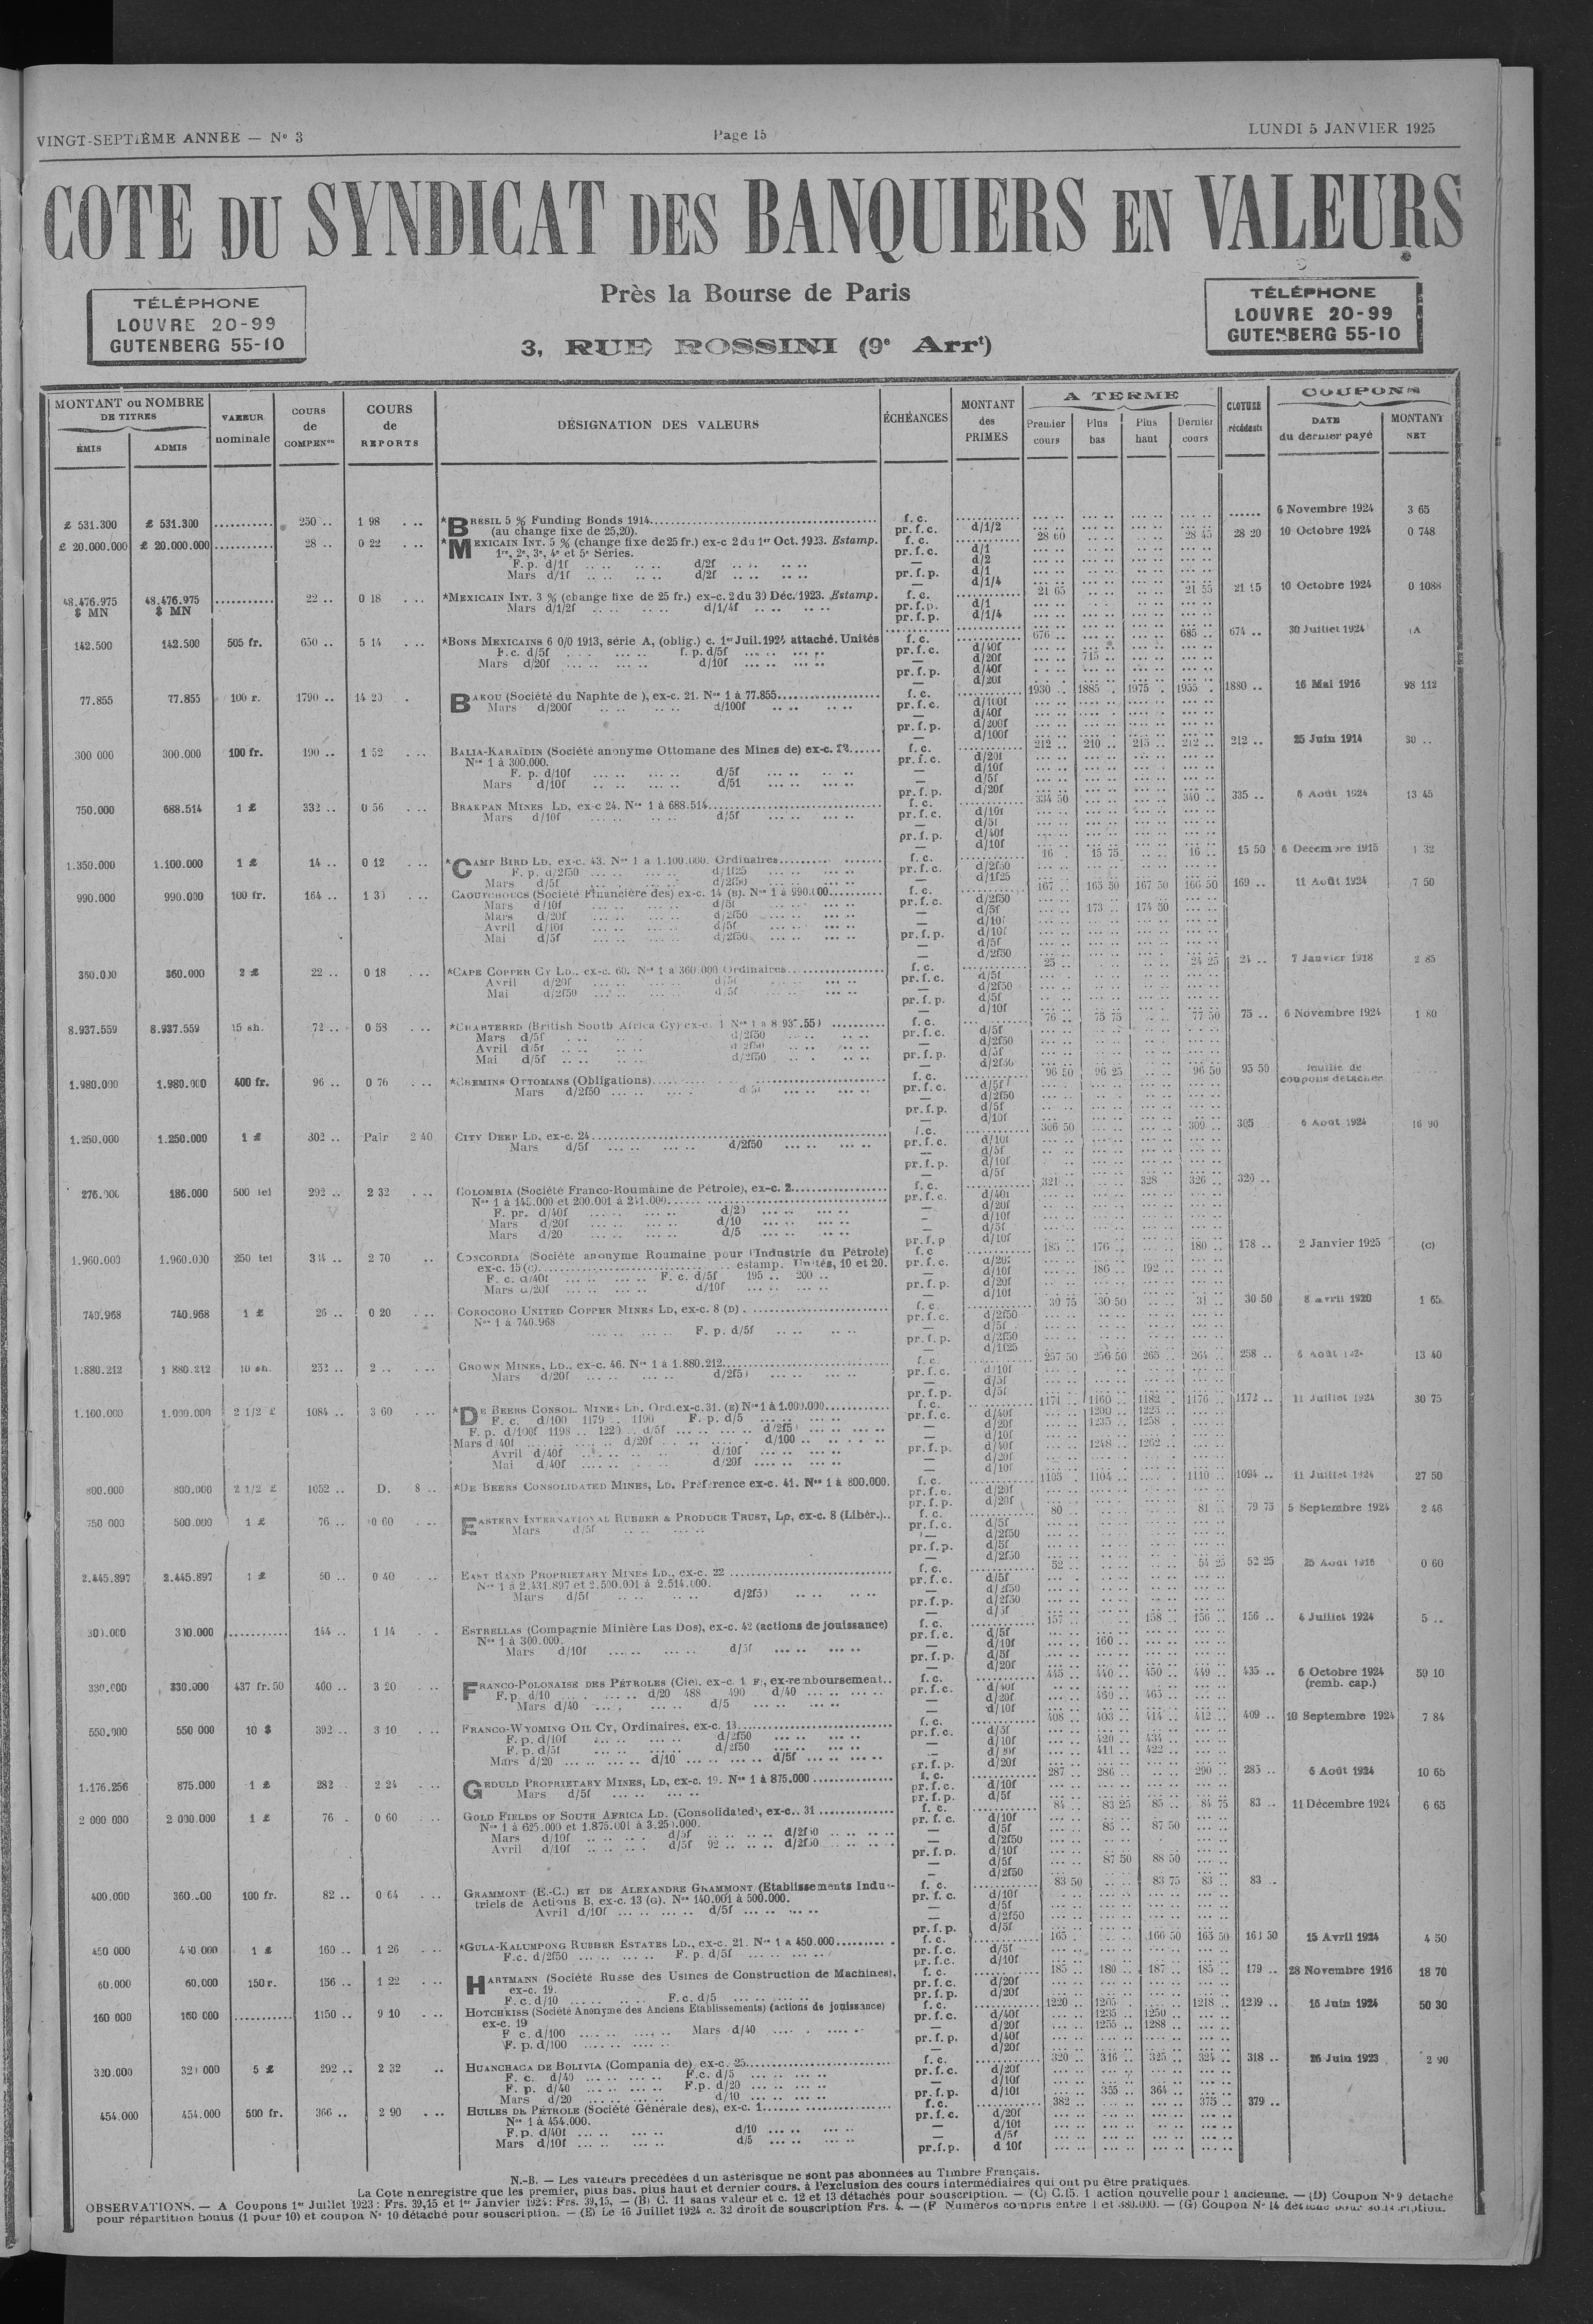 VINGT-SEPTIÈME ANNEE — N° 3
Page 15
LUNDI 5 JANVIER 1925
COTE DU SYNDICAT DES BANQUIERS EN VALEURS
TÉLÉPHONE
LOUVRE 20-99
GUTENBERG 55-10
Près la Bourse de Paris
3, RUE ROSSINI (9e Arrt)
TÉLÉPHONE
LOUVRE 20-99
GUTENBERG 55-10
MONTANT ou NOMBRE DE TITRES
ÉMIS ADMIS
VALEUR nominale
COURS de COMPENon
COURS de REPORTS
DÉSIGNATION DES VALEURS
ÉCHÉANCES
MONTANT des PRIMES
A TERME
Premier cours Plus bas Plus haut Dernier cours
CLOTURE
COUPONS
DATE du dernier payé
MONTANT NET
£ 531.300 £ 531.300 250 .. 1 98 *BRESIL 5 % Funding Bonds 1914 f. c. 6 Novembre 1924 3 65
(au change fixe de 25,20). pr. f. c. d/1/2
£ 20.000.000 £ 20.000.000 28 .. 0 22 *MEXICAIN INT. 5 % (change fixe de 25 fr.) ex-c 2 du 1er Oct. 1923. Estamp. f. c. 28 60 28 45 28 20 10 Octobre 1924 0 748
1re, 2e, 3e, 4e et 5e Séries. pr. f. c. d/1
F. p. d/1f d/2f — d/2
Mars d/1f d/2f pr. f. p. d/1
— d/1/4
48.476.975 $ MN 48.476.975 $ MN 22 .. 0 18 *MEXICAIN INT. 3 % (change fixe de 25 fr.) ex-c. 2 du 30 Déc. 1923. Estamp. f. c. 21 65 21 55 10 Octobre 1924 0 1088
Mars d/1/2f d/1/4f pr. f. p. d/1
pr. f. p. d/1/4
142.500 142.500 505 fr. 650 .. 5 14 *BONS MEXICAINS 6 0/0 1913, série A, (oblig.) c. 1er Juil. 1924 attaché. Unités f. c. 676 .. 685 .. 674 .. 30 Juillet 1924 (A
F. c. d/5f f. p. d/5f pr. f. c. d/40f
Mars d/20f d/10f — d/20f 715 ..
pr. f. p. d/40f
— d/20f
77.855 77.855 100 r. 1790 .. 14 20 BAKOU (Société du Naphte de ), ex-c. 21. Nos 1 à 77.855 f. c. 1930 1885 1975 1955 1880 .. 16 Mai 1916 98 112
Mars d/200f d/100f pr. f. c. d/100f
d/40f
pr. f. p. d/200f
— d/100f
300 000 300.000 100 fr. 190 .. 1 52 BALIA-KARAÏDIN (Société anonyme Ottomane des Mines de) ex-c. f. c. 212 .. 210 .. 215 .. 212 .. 212 .. 25 Juin 1914 30 ..
Nos 1 à 300.000. pr. f. c. d/20f
F. p. d/10f d/5f — d/10f
Mars d/10f — d/5f
pr. f. p. d/20f
750.000 688.514 1 £ 332 .. 0 56 BRAKPAN MINES LD, ex-c 24. Nos 1 à 688.514 f. c. 334 50 340 .. 335 .. 6 Août 1924 13 45
Mars d/10f d/5f pr. f. c. d/10f
d/5f
pr. f. p. d/40f
— d/10f
1.350.000 1.100.000 1 £ 14 .. 0 12 *CAMP BIRD LD, ex-c. 43. Nos 1 a 1.100.000. Ordinaires f. c. 16 .. 15 75 16 .. 15 50 6 Decembre 1915 1 32
F. p. d/2f50 d/1f25 pr. f. c. d/2f50
Mars d/5f d/2f50 — d/1f25
990.000 990.000 100 fr. 164 .. CAOUTCHOUCS (Société Financière des) ex-c. 14 (B). Nos 1 à 990.000 f. c. 167 .. 165 50 167 50 166 50 169 .. 11 Août 1924 7 50
Mars d/10f d/5f pr. f. c. d/2f50
Mars d/20f d/2f50 — d/5f 173 .. 174 50
Avril d/10f d/5f — d/10f
Mai d/5f d/2f50 pr. f. p. d/10f
— d/5f
— d/2f50
360.000 360.000 2 £ 22 .. 0 18 *CAPE COPPER CY LD., ex-c. 60. Nos 1 à 360.000 Ordinaires f. c. 25 .. 24 25 24 .. 7 Janvier 1918 2 85
Avril d/20f d/5f pr. f. c. d/5f
Mai d/2f50 d/5f — d/2f50
pr. f. p. d/5f
— d/10f
8.937.559 8.937.559 15 sh. 72 .. 0 58 *CHARTERED (British South Africa Cy) ex-c. 1 f. c. 76 .. 75 75 77 50 75 .. 6 Novembre 1924 1 80
Mars d/5f d/2f50 pr. f. c. d/5f
Avril d/5f d/2f50 — d/2f50
Mai d/5f d/2f50 pr. f. p. d/5f
— d/2f50
1.980.000 1.980.000 400 fr. 96 .. 0 76 *CHEMINS OTTOMANS (Obligations) f. c. 96 50 96 25 96 50 95 50 feuille de coupons détachée
Mars d/2f50 pr. f. c. d/5f
— d/2f50
pr. f. p. d/5f
— d/10f
1.250.000 1.250.000 1 £ 302 .. Pair 2 40 CITY DEEP LD, ex-c. 24 f. c. 306 50 309 .. 305 6 Août 1924 16 90
Mars d/5f d/2f50 pr. f. c. d/10f
— d/5f
pr. f. p. d/10f
— d/5f
186.000 500 lei 292 .. 2 32 COLOMBIA (Société Franco-Roumaine de Pétrole), ex-c. 2 f. c. 321 328 326 .. 320 ..
Nos 1 à 145.000 et 200.001 à 241.000 pr. f. c. d/40f
F. pr. d/40f d/20 — d/20f
Mars d/20f d/10 — d/10f
Mars d/20 d/5 — d/5f
pr. f. p d/10f
1.960.000 1.960.000 250 lei 2 70 CONCORDIA (Société anonyme Roumaine pour l'Industrie du Pétrole) f. c 185 .. 176 .. 180 .. 178 .. 2 Janvier 1925 (c)
ex-c. 15 (c) estamp. Unités, 10 et 20. pr. f. c. d/20f
F. c. d/40f F. c. d/5f 195 .. 200 .. — d/10f 186 .. 192 ..
Mars d/20f d/10f pr. f. p. d/20f
— d/10f
740.968 740.968 1 £ 26 .. 0 20 COROCORO UNITED COPPER MINES LD, ex-c. 8 (D) f. c. 30 75 30 50 31 .. 30 50 8 Avril 1920 1 65
Nos 1 à 740.968 pr. f. c. d/2f50
F. p. d/5f — d/5f
pr. f. p. d/2f50
— d/1f25
1.880.212 1 880.212 10 sh. 232 .. 2 .. CROWN MINES, LD., ex-c. 46. Nos 1 à 1.880.212 f. c. 257 50 256 50 265 .. 264 .. 258 .. 6 Août 1924 13 40
Mars d/20f d/2f50 pr. f. c. d/10f
— d/5f
pr. f. p. d/5f
1.100.000 1.000.000 2 1/2 £ 1084 .. 3 60 *DE BEERS CONSOL. MINES LD. Ord. ex-c. 31. (E) Nos 1 à 1.000.000 f. c. 1171 .. 1160 .. 1182 .. 1176 .. 1172 .. 11 Juillet 1924 30 75
F. c. d/100 1179 .. 1190 F. p. d/5 pr. f. c. d/40f 1200 ..
F. p. d/100f 1198 .. 1220 .. d/5f d/2f50 — d/20f 1235 .. 1258 ..
Mars d/40f d/20f d/100 — d/10f
Avril d/40f d/10f pr. f. p. d/40f 1248 .. 1262 ..
Mai d/40f d/20f — d/20f
— d/10f
800.000 800.000 2 1/2 £ 1052 .. D. 8 .. *DE BEERS CONSOLIDATED MINES, LD. Préférence ex-c. 41. Nos 1 à 800.000. f. c. 1105 1104 .. 1110 .. 1094 .. 11 Juillet 1924 27 50
pr. f. c. d/20f
pr. f. p. d/20f
750 000 500.000 1 £ 76 .. 0 60 EASTERN INTERNATIONAL RUBBER & PRODUCE TRUST, LD, ex-c. 8 (Libér.) f. c. 80 .. 81 .. 79 75 5 Septembre 1924 2 46
Mars d/5f pr. f. c. d/5f
— d/2f50
pr. f. p. d/5f
— d/2f50
2.445.897 2.445.897 1 £ 50 .. 0 40 EAST RAND PROPRIETARY MINES LD., ex-c. 22 f. c. 52 .. 54 25 52 25 25 Août 1916 0 60
Nos 1 à 2.431.897 et 2.500.001 à 2.514.000. pr. f. c. d/5f
Mars d/5f d/2f50 — d/2f50
pr. f. p. d/2f50
— d/5f
300.000 300.000 144 .. 1 14 ESTRELLAS (Compagnie Minière Las Dos), ex-c. 42 (actions de jouissance) f. c. 157 .. 158 .. 156 .. 156 .. 4 Juillet 1924 5 ..
Nos 1 à 300.000. pr. f. c. d/5f
Mars d/10f d/5f — d/10f 160 ..
pr. f. p. d/5f
— d/20f
330.000 330.000 437 fr. 50 400 .. 3 20 FRANCO-POLONAISE DES PÉTROLES (Cie). ex-c. 1 F, ex-remboursement f. c. 445 .. 440 .. 450 .. 449 .. 435 .. 6 Octobre 1924 (remb. cap.) 59 10
F. p. d/10 d/20 488 490 d/40 pr. f. c. d/40f
Mars d/40 d/5 — d/20f 460 .. 465 ..
— d/10f
550.000 550 000 10 $ 392 .. 3 10 FRANCO-WYOMING OIL CY, Ordinaires. ex-c. 13 f. c. 408 .. 403 .. 414 .. 412 .. 409 .. 10 Septembre 1924 7 84
F. p. d/10f d/2f50 pr. f. c. d/5f
F. p. d/5f d/2f50 — d/10f 420 .. 434 ..
Mars d/20 d/10 d/5f — d/20f 411 .. 422 ..
pr. f. p. d/20f
1.176.256 875.000 1 £ 282 2 24 GEDULD PROPRIETARY MINES, LD, ex-c. 19. Nos 1 à 875.000 f. c. 287 .. 286 .. 290 .. 285 .. 6 Août 1924 10 65
Mars d/5f pr. f. c. d/10f
pr. f. p. d/5f
2 000 000 2 000.000 1 £ 76 . 0 60 GOLD FIELDS OF SOUTH AFRICA LD. (Consolidated), ex-c.. 31 f. c. 84 .. 83 25 85 .. 84 75 83 .. 11 Décembre 1924 6 65
Nos 1 à 625.000 et 1.875.001 à 3.250.000. pr. f. c. d/10f
Mars d/10f d/5f d/2f50 — d/5f 85 .. 87 50
Avril d/10f d/5f 92 .. d/2f50 — d/2f50
pr. f. p. d/10f
— d/5f 87 50 88 50
— d/2f50
400.000 100 fr. 82 .. 0 64 GRAMMONT (E.-C.) ET DE ALEXANDRE GRAMMONT (Etablissements Indus- f. c. 83 50 83 75 83 .. 83 ..
triels de Actions B, ex-c. 13 (G). Nos 140.001 à 500.000. pr. f. c. d/10f
Avril d/10f d/5f — d/5f
— d/2f50
pr. f. p. d/5f
450 000 450 000 1 £ 160 .. 1 26 *GULA-KALUMPONG RUBBER ESTATES LD., ex-c. 21. Nos 1 a 450.000 f. c. 165 .. 166 50 165 50 15 Avril 1924 4 50
F.c. d/2f50 F. p. d/5f pr. f. c. d/5f
pr. f. c. d/10f
60.000 60.000 150 r. 156 .. 1 22 HARTMANN (Société Russe des Usines de Construction de Machines), f. c. 185 .. 180 .. 187 .. 185 .. 179 .. 28 Novembre 1916 18 70
ex-c. 19. pr. f. c. d/20f
F. c. d/10 F. c. d/5 pr. f. p. d/20f
160 000 160 000 1150 .. 9 10 HOTCHKISS (Société Anonyme des Anciens Etablissements) (actions de jouissance) f. c. 1220 .. 1205 .. 1218 .. 15 Juin 1924 50 30
ex-c. 19 pr. f. c. d/40f 1235 .. 1250 ..
F c. d/100 Mars d/40 — d/20f 1255 .. 1288 ..
F. p. d/100 pr. f. p. d/40f
— d/20f
320.000 320 000 5 £ 292 .. 2 32 HUANCHACA DE BOLIVIA (Compania de) ex-c. 25 f. c. 320 .. 316 .. 325 .. 324 .. 318 .. 26 Juin 1923 2 90
F. c. d/40 F.c. d/5 pr. f. c. d/20f
F. p. d/40 F.p. d/20 — d/10f
Mars d/20 d/10 pr. f. p. d/10f 355 .. 364 ..
454.000 454.000 500 fr. 366 .. 2 90 HUILES DE PÉTROLE (Société Générale des), ex-c. 1 f. c. 382 .. 375 .. 379 ..
Nos 1 à 454.000. pr. f. c. d/20f
F. p. d/40f d/10 — d/10f
Mars d/10f d/5 — d/5f
pr. f. p. d 10f
N.-B. — Les valeurs precédées d un astérisque ne sont pas abonnées au Timbre Français.
La Cote n enregistre que les premier, plus bas, plus haut et dernier cours, à l'exclusion des cours intermédiaires qui ont pu être pratiqués.
OBSERVATIONS. — A Coupons 1er Juillet 1923 : Frs. 39,15 et 1er Janvier 1924 : Frs. 39,15. — (B) C. 11 sans valeur et c. 12 et 13 détachés pour souscription. — (C) C.15. 1 action nouvelle pour 1 ancienne. — (D) Coupon N° 9 détaché
pour répartition bonus (1 pour 10) et coupon N° 10 détaché pour souscription. — (E) Le 16 Juillet 1924 c. 32 droit de souscription Frs. 4. — (F Numéros compris entre 1 et 380.000. — (G) Coupon N° 14 détaché pour souscription.